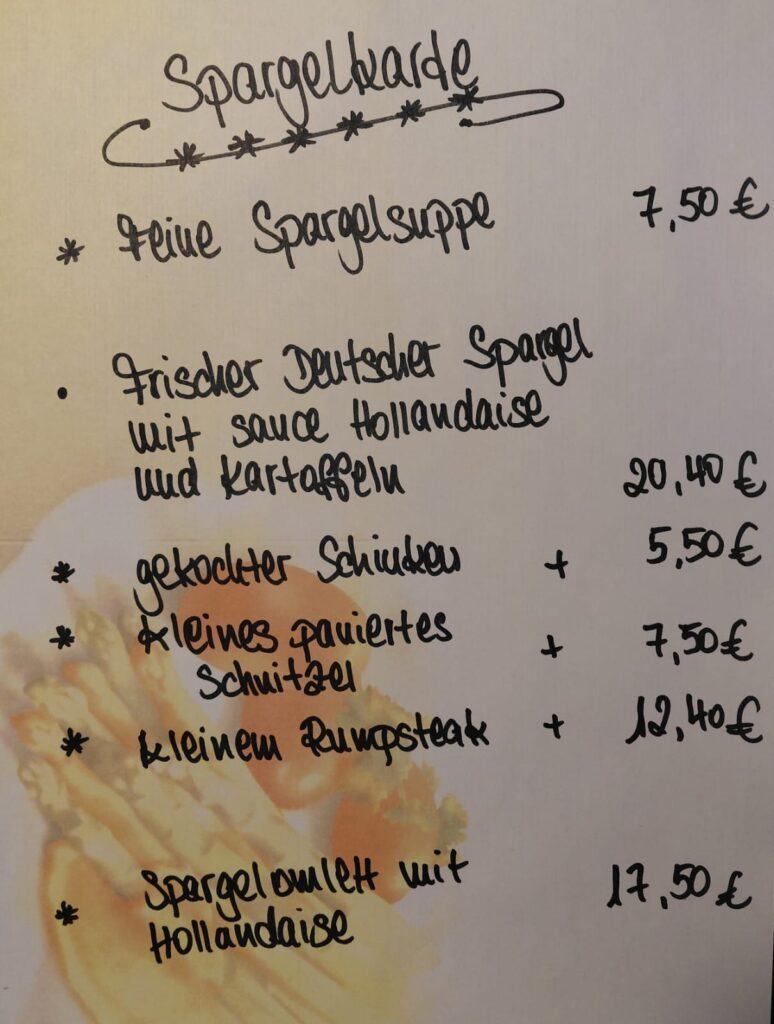 Spargelkarde
* Feine Spargelsuppe 7,50 €
• Frischer Deutscher Spargel
mit sauce Hollandaise
und Kartoffeln 20,40 €
* gekochter Schinken + 5,50 €
* kleines paniertes
Schnitzel + 7,50 €
* kleinem Rumpsteak + 12,40 €
* Spargelomlett mit 17,50 €
Hollandaise